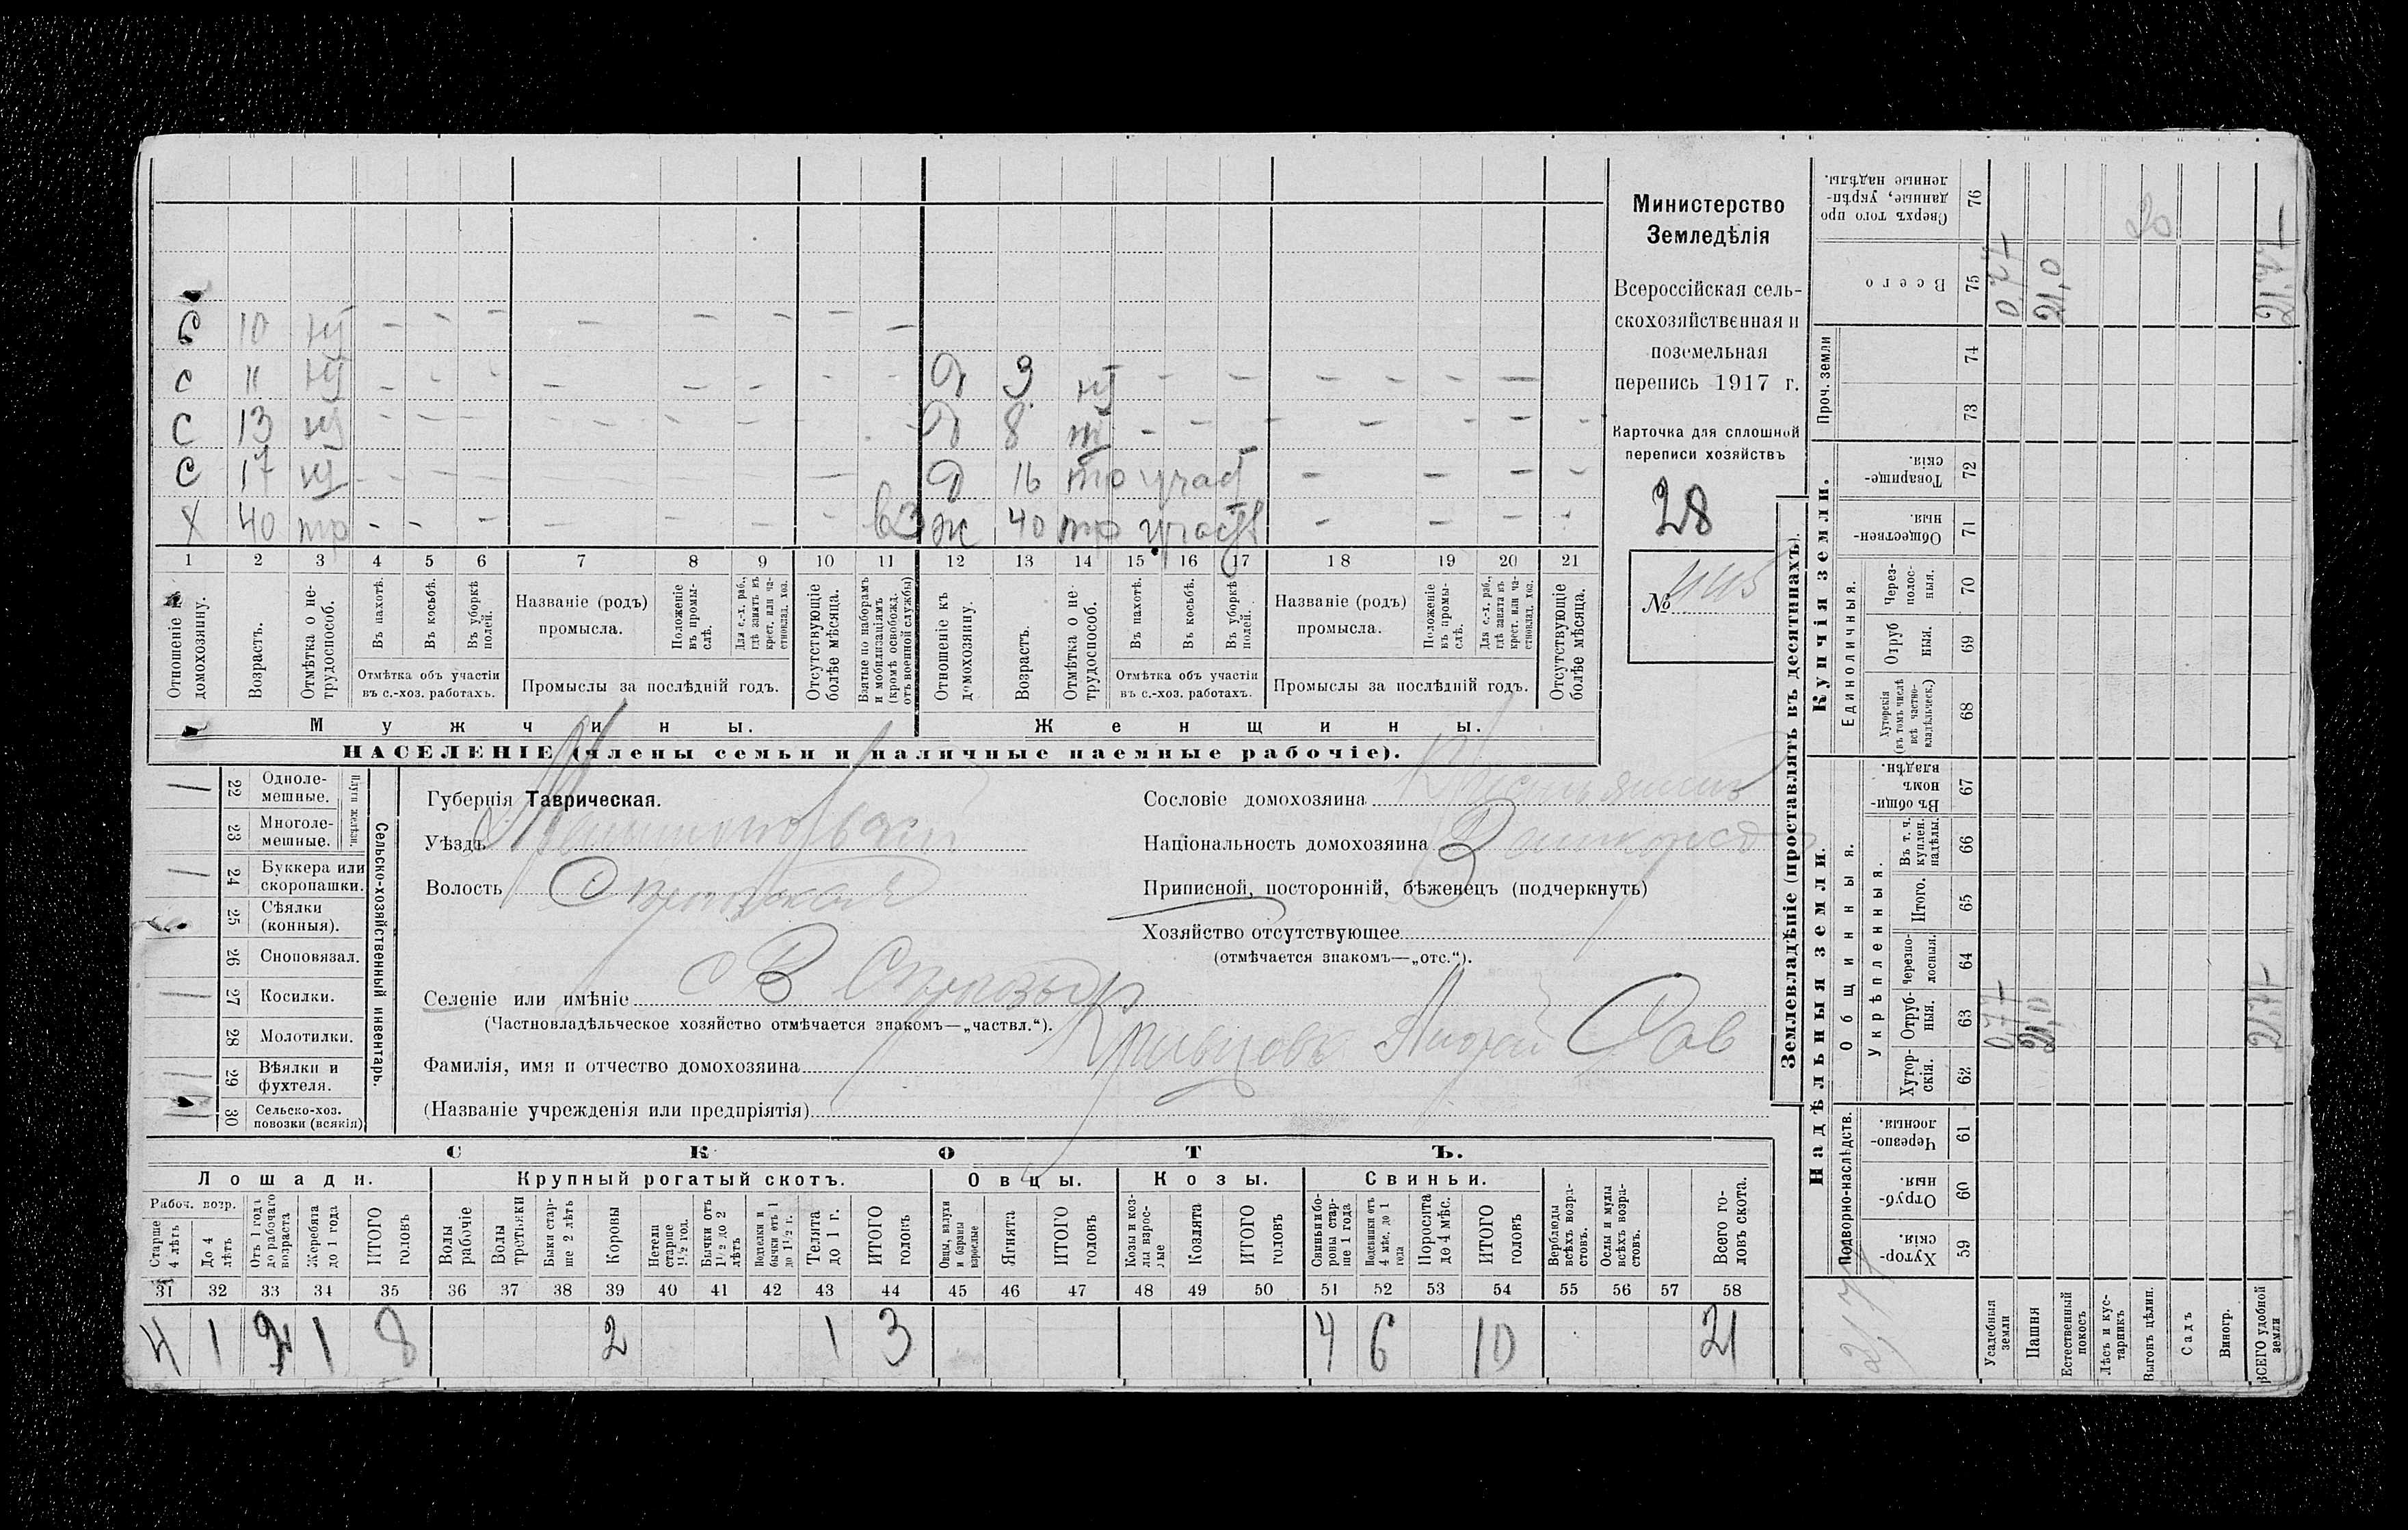 Министерство
Земледѣлія
Всероссійская сель-
скохозяйственная и
поземельная
перепись 1917 г.
Карточка для сплошной
переписи хозяйствъ
28
№ 445
С 10 нт — — — — — — — —
С 11 нт — — — — — — — — Д 3 нт — — — — — — —
С 13 нт — — — — — — — — Д 8 нт — — — — — — —
С 17 нт — — — — — — — Д 16 тр участ — — — —
Х 40 тр — — — — — — — вз Ж 40 тр участв — — — —
1 2 3 4 5 6 7 8 9 10 11 12 13 14 15 16 17 18 19 20 21
Отношеніе къ домохозяину.
Возрастъ.
Отмѣтка о не-трудоспособ.
Въ пахотѣ.
Въ косьбѣ.
Въ уборкѣ полей.
Отмѣтка объ участіи въ с.-хоз. работахъ.
Названіе (родъ) промысла.
Положеніе въ промы-слѣ.
Для с.-х. раб., гдѣ занятъ въ крест. или ча-стновлад. хоз.
Промыслы за послѣдній годъ.
Отсутствующіе болѣе мѣсяца.
Взятые по наборамъ и мобилизаціямъ (кромѣ освобожд. отъ военной службы)
Отношеніе къ домохозяину.
Возрастъ.
Отмѣтка о не-трудоспособ.
Въ пахотѣ.
Въ косьбѣ.
Въ уборкѣ полей.
Отмѣтка объ участіи въ с.-хоз. работахъ.
Названіе (родъ) промысла.
Положеніе въ промы-слѣ.
Для с.-х. раб., гдѣ занята въ крест. или ча-стновлад. хоз.
Промыслы за послѣдній годъ.
Отсутствующіе болѣе мѣсяца.
Мужчины. Женщины.
НАСЕЛЕНІЕ (члены семьи и наличные наемные рабочіе).
Сельско-хозяйственный инвентарь.
Плуги желѣзн.
22 Одноле-мешные.
23 Многоле-мешные.
24 Буккера или скоропашки.
25 Сѣялки (конныя).
26 Сноповязал.
27 Косилки.
28 Молотилки.
29 Вѣялки и фухтеля.
30 Сельско-хоз. повозки (всякія)
Губернія Таврическая.
Уѣздъ
Волость
Селеніе или имѣніе В
(Частновладѣльческое хозяйство отмѣчается знакомъ—„частвл.“).
Фамилія, имя и отчество домохозяина Сав
(Названіе учрежденія или предпріятія)
Сословіе домохозяина Крестьянинъ
Національность домохозяина
Приписной, посторонній, бѣженецъ (подчеркнуть)
Хозяйство отсутствующее
(отмѣчается знакомъ—„отс.“).
СКОТЪ.
Лошади. Крупный рогатый скотъ. Овцы. Козы. Свиньи.
Рабоч. возр.
Старше 4 лѣтъ
До 4 лѣтъ
Отъ 1 года до рабочаго возраста
Жеребята до 1 года
ИТОГО головъ
Волы рабочіе
Волы третьяки
Быки стар-ше 2 лѣтъ
Коровы
Нетели старше 1½ год.
Бычки отъ 1½ до 2 лѣтъ
Подтелки и бычки отъ 1 до 1½ г.
Телята до 1 г.
ИТОГО головъ
Овцы, валухи и бараны взрослые
Ягнята
ИТОГО головъ
Козы и коз-лы взрос-лые
Козлята
ИТОГО головъ
Свиньи и бо-ровы стар-ше 1 года
Подсвинки отъ 4 мѣс. до 1 года
Поросята до 4 мѣс.
ИТОГО головъ
Верблюды всѣхъ возра-стовъ.
Ослы и мулы всѣхъ возра-стовъ.
Всего го-ловъ скота.
31 32 33 34 35 36 37 38 39 40 41 42 43 44 45 46 47 48 49 50 51 52 53 54 55 56 57 58
4 1 2 1 8 2 1 3 4 6 10 21
Землевладѣніе (проставлять въ десятинахъ).
Надѣльныя земли. Купчія земли. Проч. земли
Подворно-наслѣдств. Общинныя. Единоличныя.
Укрѣпленныя.
Хутор-скія. 59
Отруб-ныя. 60
Черезпо-лосныя. 61
Хутор-скія. 62
Отруб-ныя. 63
Черезпо-лосныя. 64
Итого. 65
Въ т. ч. куплен. надѣлы. 66
Въ общи-номъ владѣн. 67
Хуторскія (въ томъ числѣ всѣ частно-владѣльческ.) 68
Отруб ныя. 69
Через-полос-ныя. 70
Обществен-ныя. 71
Товарище-скія. 72
73
74
Всего 75
Сверхъ того про даные, укрѣп-ленные надѣлы. 76
Усадебныя земли 0,77 0,77
Пашня 21,0 21,0
Естественный покосъ
Лѣсъ и кус-тарникъ
Выгонъ цѣлин. 20
Садъ
Виногр.
ВСЕГО удобной земли 21,77 21,77